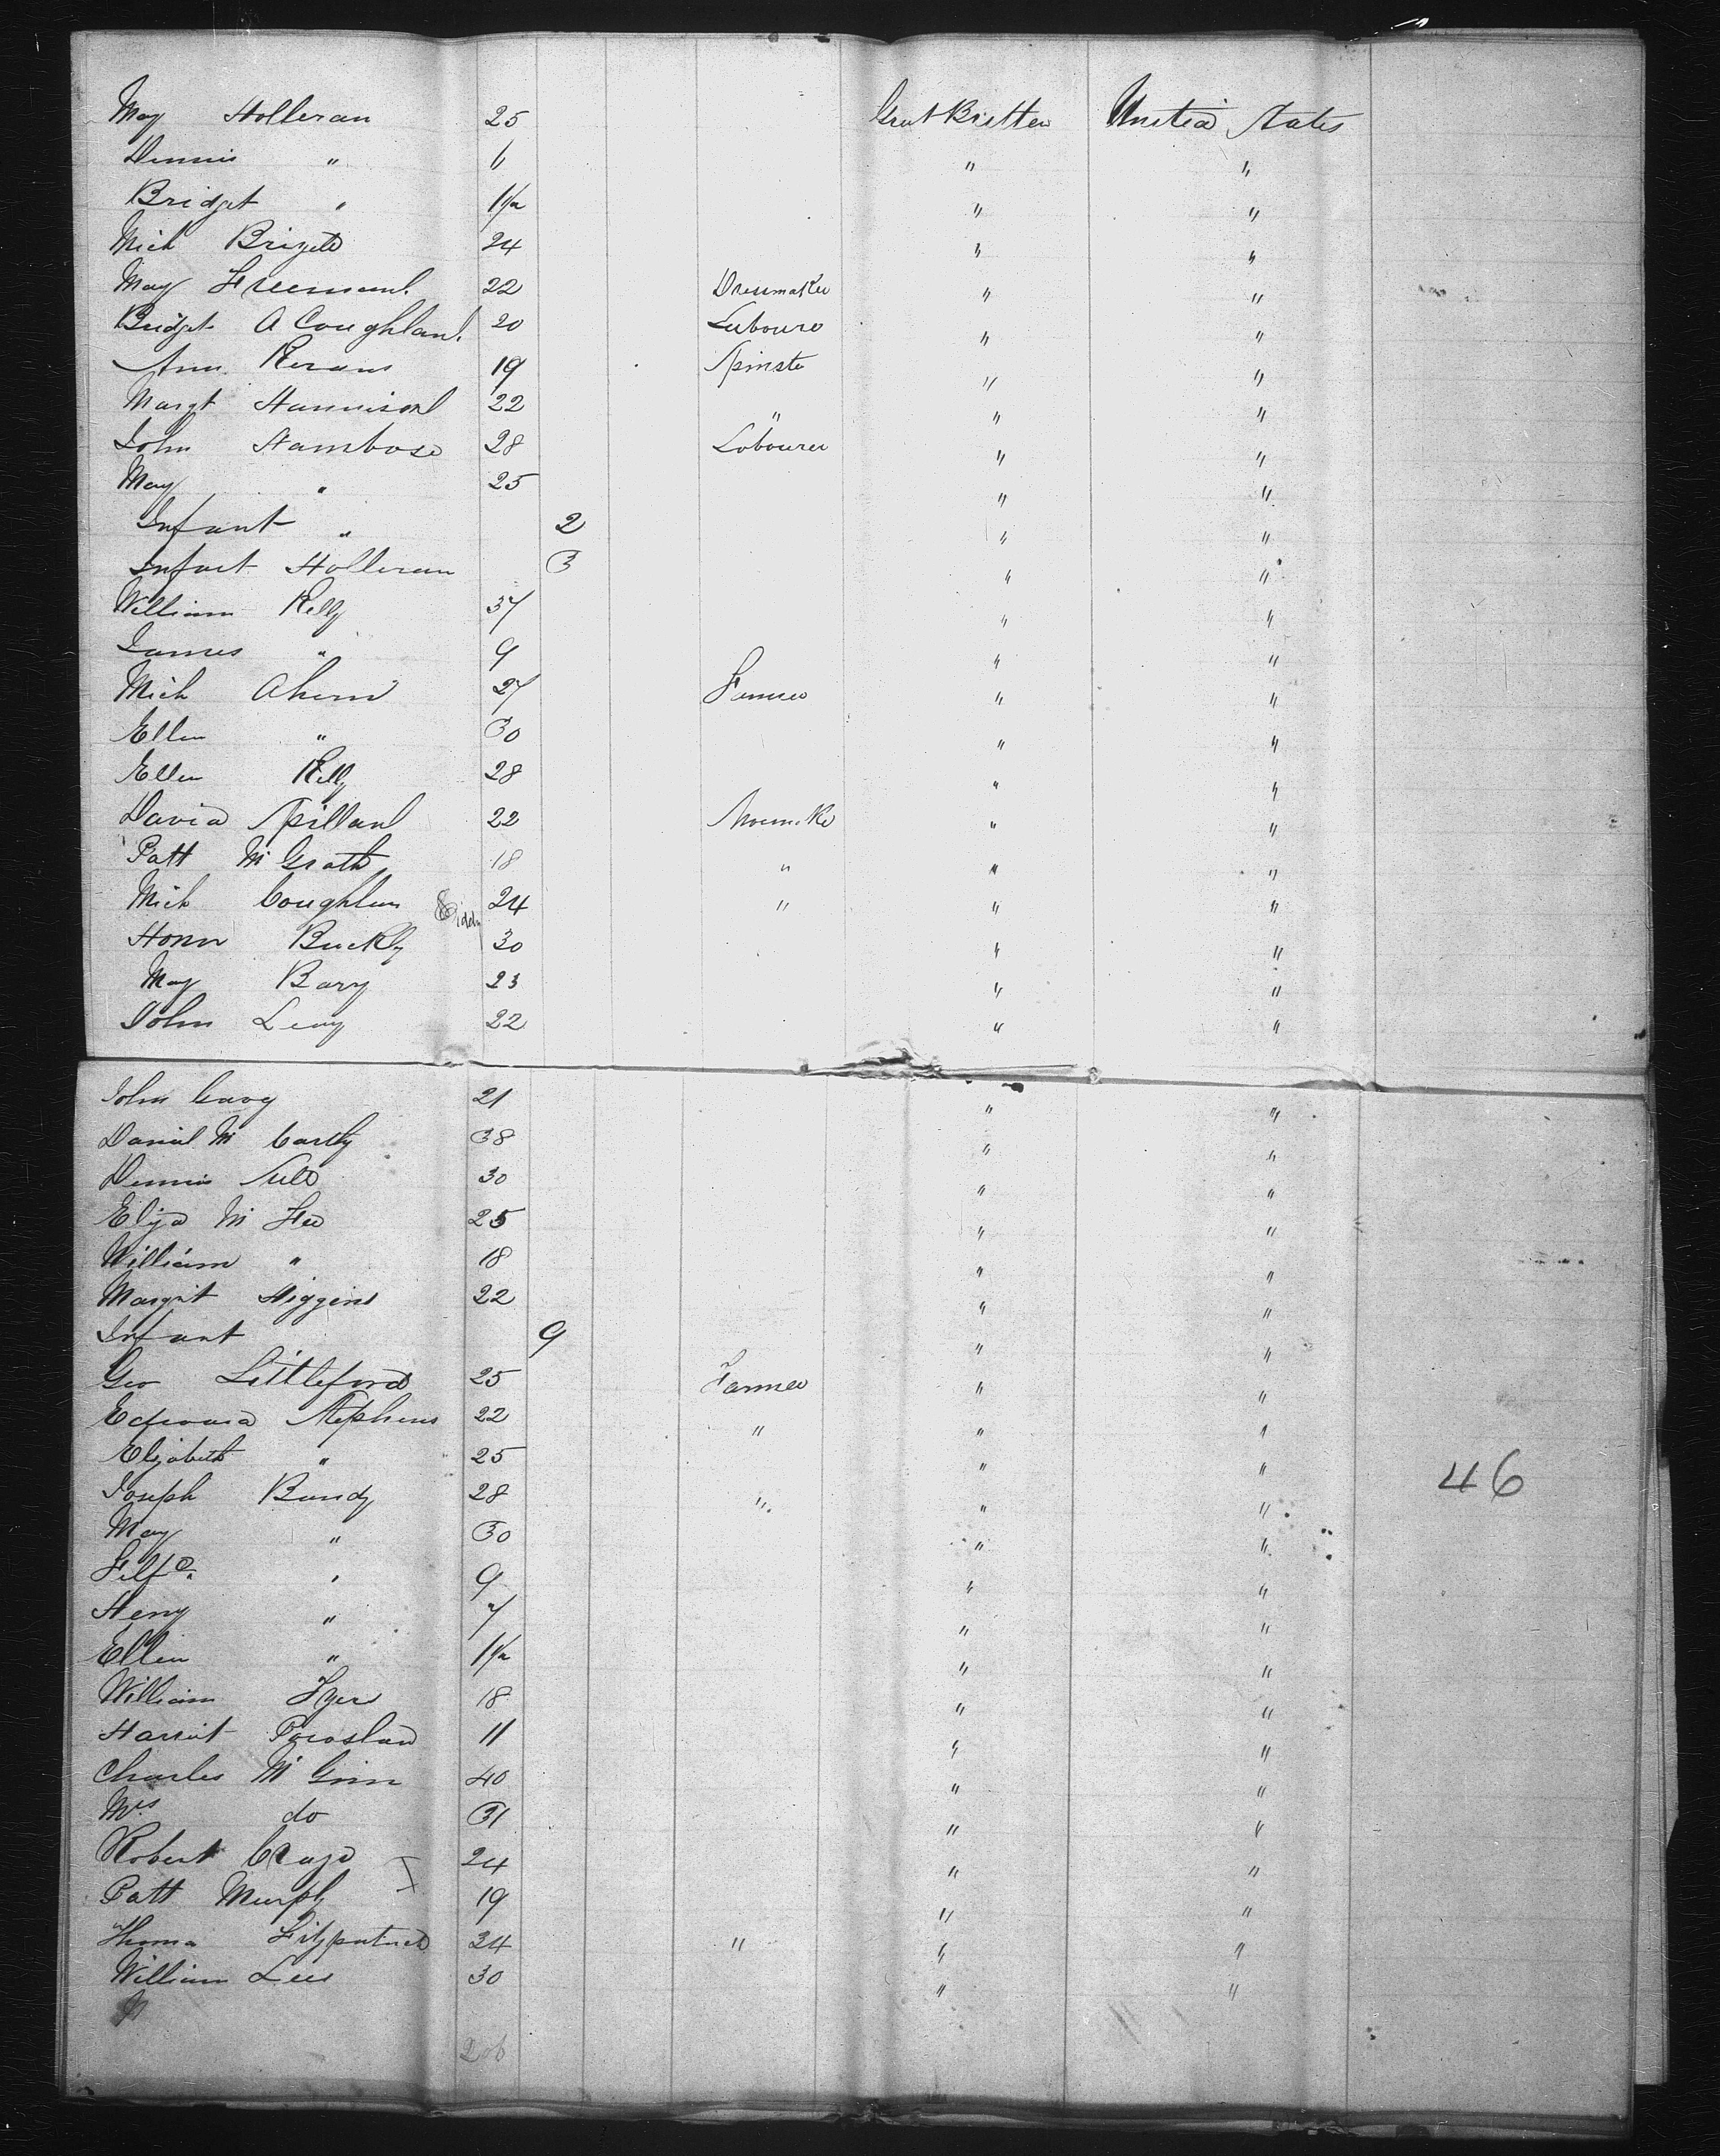 May Holleran 25 Great Britten United States
Dennis " 11 " "
Bridget " 1 1/2 " "
Mich 24 " "
May Freeman 22 Dressmaker " "
Bridget A Coughlan 20 Labourer " "
Ann Kerans 19 Spinster " "
Margt Hannison 22 " " "
John Hambose 28 Labourer " "
May " 25 " "
Infant " 2 " "
Infant Holleran 3 " "
William Kelly 37 " "
James " 9 " "
Mich Ahern 27 Farmer " "
Ellen " 30 " "
Ellen Kelly 28 " "
David Spillan 22 " "
Patt Mc Grath 18 " " "
Mich Coughlan 24 " " "
Honor Buckly 30 " "
May Bary 23 " "
John Leary 22 " "
John 21 " "
Daniel Mc Carthy 38 " "
Dennis 30 " "
Eliza Mc Fee 25 " "
William " 18 " "
Margrit Higgins 22 " "
Infant 9 " "
Geo Littleford 25 Farmer " "
Edward Stephens 22 " " "
Elizabeth " 25 " "
Joseph Bundy 28 " " "
May " 30 " "
" 9 " "
Heny " 7 " "
Ellen " 1 1/2 " "
William 18 " "
Harriet 11 " "
Charles Mc Ginn 40 " "
Mrs do 31 " "
Robert 24 " "
Patt Murphy 19 " "
Thomas Fitzpatrick 34 " " "
William Lees 30 " "
46
206